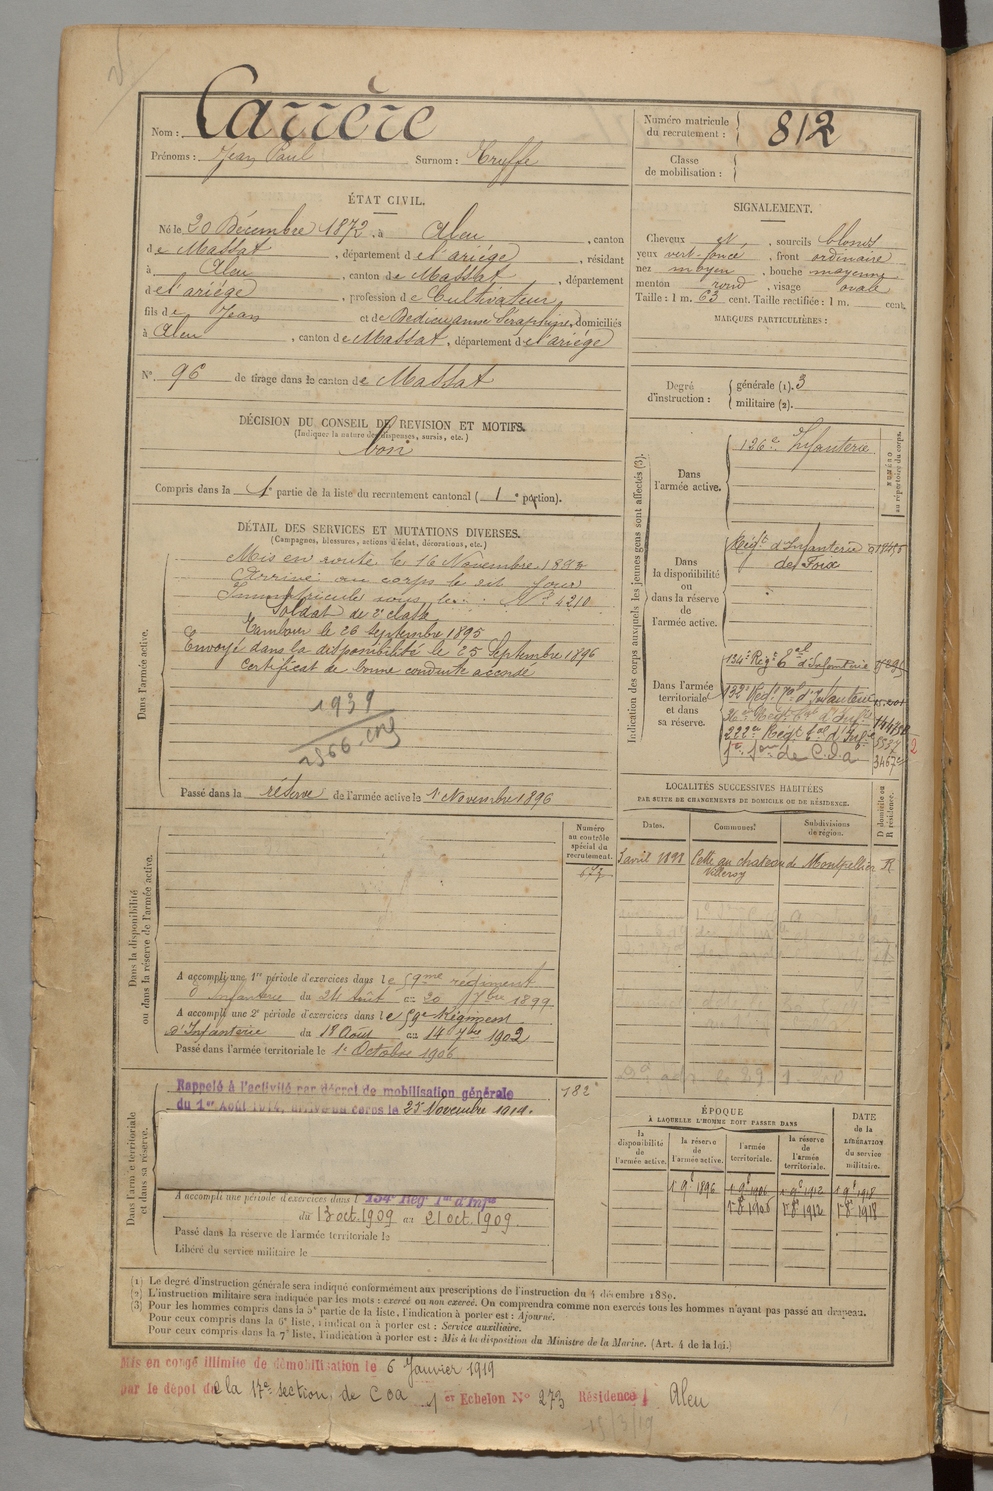 Nom : Carrère
Prénoms : Jean Paul Surnom : Truffe
Numéro matricule du recrutement : 812
Classe de mobilisation :
ÉTAT CIVIL.
Né le 20 Décembre 1872, à Aleu, canton
de Massat, département de l'ariége, résidant
à Aleu, canton de Massat, département
de l'ariége, profession de Cultivateur
fils de Jean et de Dedieuyanne Séraphine, domiciliés
à Aleu, canton de Massat, département de l'ariége
N° 96 de tirage dans le canton de Massat
DÉCISION DU CONSEIL DE REVISION ET MOTIFS.
(Indiquer la nature des dispenses, sursis, etc.)
bon
Compris dans la 1e partie de la liste du recrutement cantonal (1e portion).
SIGNALEMENT.
Cheveux et, sourcils blonds
yeux vert foncé, front ordinaire
nez moyen, bouche moyenne
menton rond, visage ovale
Taille : 1 m. 63 cent. Taille rectifiée : 1 m. cent.
MARQUES PARTICULIÈRES :
Degré d'instruction : générale (1). 3
militaire (2).
DÉTAIL DES SERVICES ET MUTATIONS DIVERSES.
(Campagnes, blessures, actions d'éclat, décorations, etc.)
Dans l'armée active.
Mis en route le 16 Novembre 1893
Arrivé au corps le dit Jour
Immatriculé sous le N° 4210
Soldat de 2e classe
Tambour le 26 Septembre 1895
Envoyé dans la disponibilité le 25 Septembre 1896
Certificat de bonne conduite accordé
1939
2366
Passé dans la réserve de l'armée active le 1 Novembre 1896
Indication des corps auxquels les jeunes gens sont affectés (3).
NUMÉRO au répertoire du corps.
Dans l'armée active.
126e Infanterie
Dans la disponibilité ou dans la réserve de l'armée active.
Régt d'Infanterie
de Foix
Dans l'armée territoriale et dans sa réserve.
134e Régt tal d'Infanterie
132e Regt tal d'Infanterie
222e Régt tal d'Infie
de C.O.a
LOCALITÉS SUCCESSIVES HABITÉES
PAR SUITE DE CHANGEMENTS DE DOMICILE OU DE RÉSIDENCE.
Dates. Communes. Subdivisions de région. D domicile ou R résidence.
5 avril 1898 Cette au chateau de Villeroy Montpellier R
Dans la disponibilité ou dans la réserve de l'armée active.
Numéro au contrôle spécial du recrutement.
A accompli une 1re période d'exercices dans le 59me régiment
d'Infanterie du 24 Août au 20 7bre 1899
A accompli une 2e période d'exercices dans le 59e Régiment
d'Infanterie du 18 Août au 14 7bre 1902
Passé dans l'armée territoriale le 1e Octobre 1906
Dans l'armée territoriale et dans sa réserve.
Rappelé à l'activité par décret de mobilisation générale
du 1er Août 1914, arrivé au corps le 25 Novembre 1914.
182
A accompli une période d'exercices dans l 134e Rég Tal d'Infie
du 13 oct. 1909 au 21 oct. 1909
Passé dans la réserve de l'armée territoriale le
Libéré du service militaire le
ÉPOQUE
À LAQUELLE L'HOMME DOIT PASSER DANS
DATE de la LIBÉRATION du service militaire.
la disponibilité de l'armée active. la réserve de l'armée active. l'armée territoriale. la réserve de l'armée territoriale.
1 9e 1896 1 9e 1906 1 9e 1912 1 9e 1918
1 8e 1906 1 8e 1912 1 8e 1918
(1) Le degré d'instruction générale sera indiqué conformément aux prescriptions de l'instruction du 4 décembre 1889.
(2) L'instruction militaire sera indiquée par les mots : exercé ou non exercé. On comprendra comme non exercés tous les hommes n'ayant pas passé au drapeau.
(3) Pour les hommes compris dans la 5e partie de la liste, l'indication à porter est : Ajourné.
Pour ceux compris dans la 6e liste, l'indication à porter est : Service auxiliaire.
Pour ceux compris dans la 7e liste, l'indication à porter est : Mis à la disposition du Ministre de la Marine. (Art. 4 de la loi.)
Mis en congé illimité de démobilisation le 6 Janvier 1919
par le dépôt de la 17e section de Coa 1er Echelon N° 273 Résidence Aleu
15/3/19